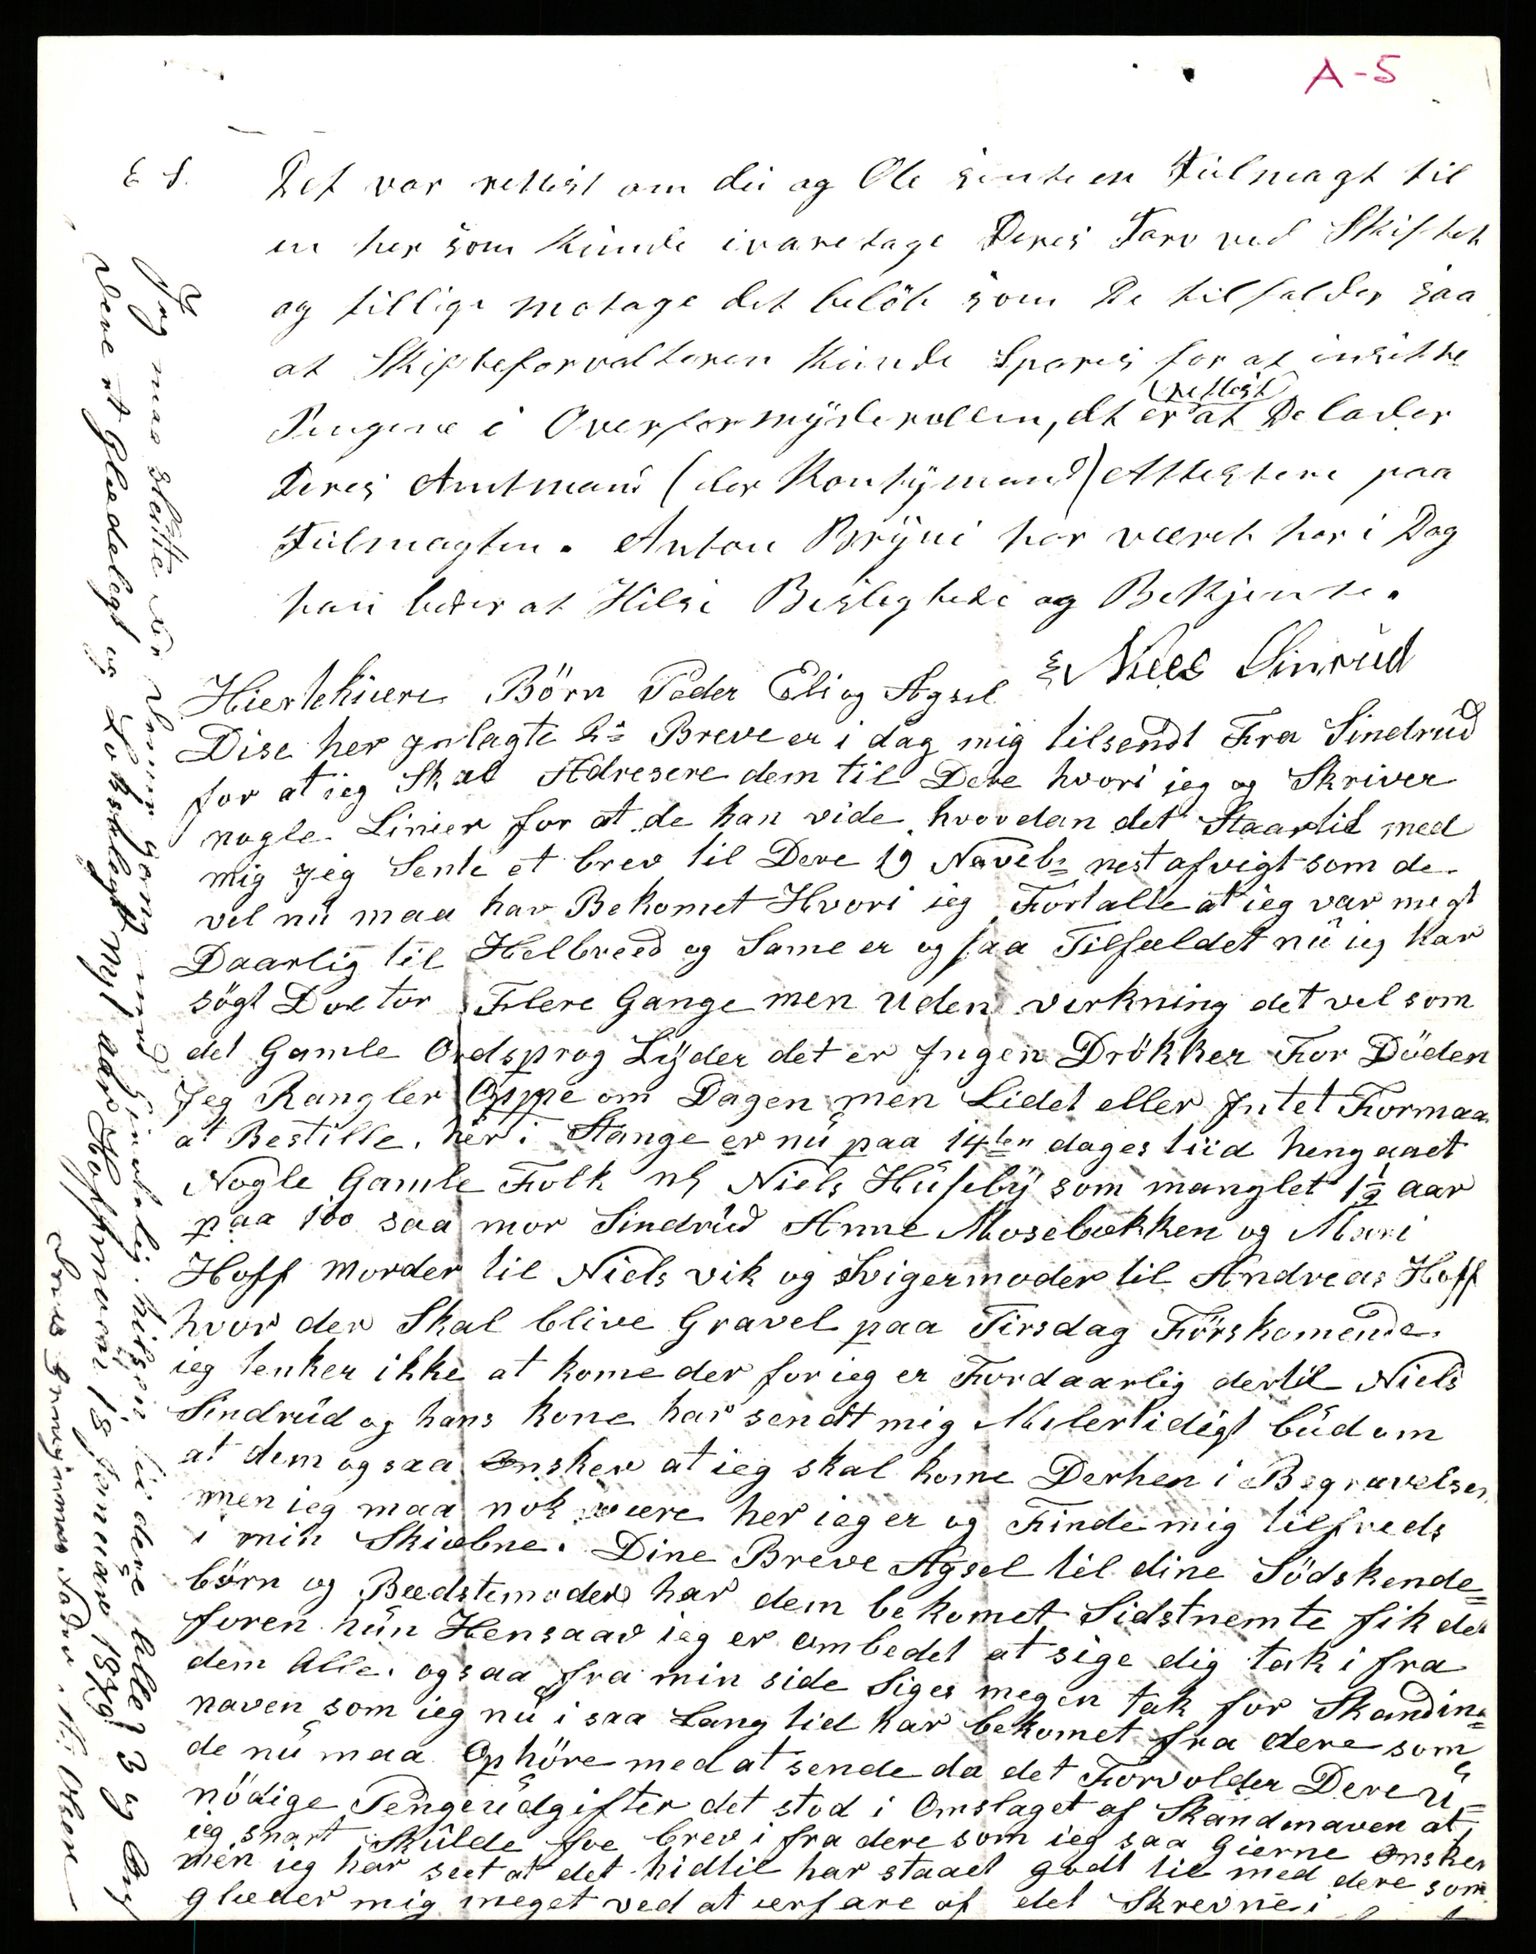 A-5
E S. Det var rettest om du og Ole sente en Fulmagt til
en her som Kunde ivaretage Deres Tarv ved Skiftet
og tillige motage det beløb som De tilfalder saa
at Skifteforvalteren Kunde Spares for at insætte
Pengene i Overformynderollen, dt er at De lader
rettest
Deres Amtmand (der Kontymand) Attestere paa
Fulmagten. Anton Bryni har været her i Dag
han beder at Hilse Beslegtede og Bekjente.
Niels Sinrud
Hiertekiere Børn Peder Eli og Agsel
Dise her Jnlagte 2= Breve er i dag mig tilsendt Fra Sindrud
for at ieg Skal Adresere dem til Dere hvori jeg og Skriver
nogle Linier for at de kan vide hvordan det Staartil med
mig Jeg Sente et brev til Dere 19 Naveb= nest afvigt som de
vel nu maa har Bekomet Hvori ieg Fortalte at ieg var megt
Daarlig til Helbreed og Same er og saa Tilfældet nu ieg har
søgt Doctor Flere Gange men uden virkning det vel som
det Gamle Ordsprog Lyder det er Jngen Drøkker For Døden
Jeg Rangler Oppe om Dagen men Lidet eller Jntet Formaa
at Bestille. her i Stange er nu paa 14ten dages tiid hengaaet
Nogle Gamle Folk nl Niels Huseby som manglet 1½ aar
paa 100 saa mor Sindrud Anne Mosebækken og Mari
Hoff Morder til Niels vik og Svigermoder til Andreas Hoff
hvor der Skal blive Gravel paa Tirsdag Førskomende.
ieg tenker ikke at kome der for ieg er Fordaarlig dertil Niels
Sindrud og hans kone har sendt mig Melertidigt bud om
at dem og saa Ønsker at ieg skal kome Derhen i Begravelsen
men ieg maa nok være her ieg er og Finde mig tilfreds
i min Skiæbne. Dine Breve Agsel til dine Södskende=
børn og Bædstemoder har dem bekomet Sidstnemte fik det
foren hun Hensaav ieg er ombedet at sige dig tak i fra
dem Alle. ogsaa fra min side Siges megen tak for Skandin=
naven som ieg nu i saa Lang tid har bekomet fra dere som
de nu maa Ophøre med at sende da det Forvolder Dere u=
nödige Pengeudgifter det stod i Omslaget af Skandinaven at
ieg snart Skulde foe brev i fra dere som ieg saa gierne Ønsker
men ieg har seet at det hidtil har staaet godt til med dere som
glæder mig meget ved at ærfare af det Skrevne i
Jeg maa slutte for denne gang med hilsen til dere alle 3 og Ønsker
Dere et Gledeligt og Lokeligt Nyt aar Hoffmoen 18 Januar 1879
Olsen